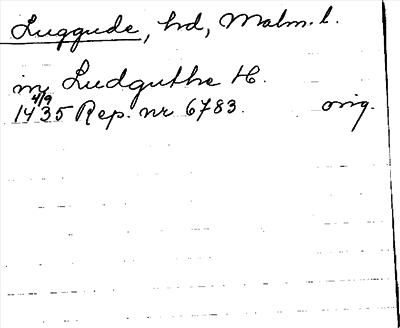 Luggude, hd, Malm. l.
in Ludguthe H.
14 4/9 35 Rep. nr 6783. orig.